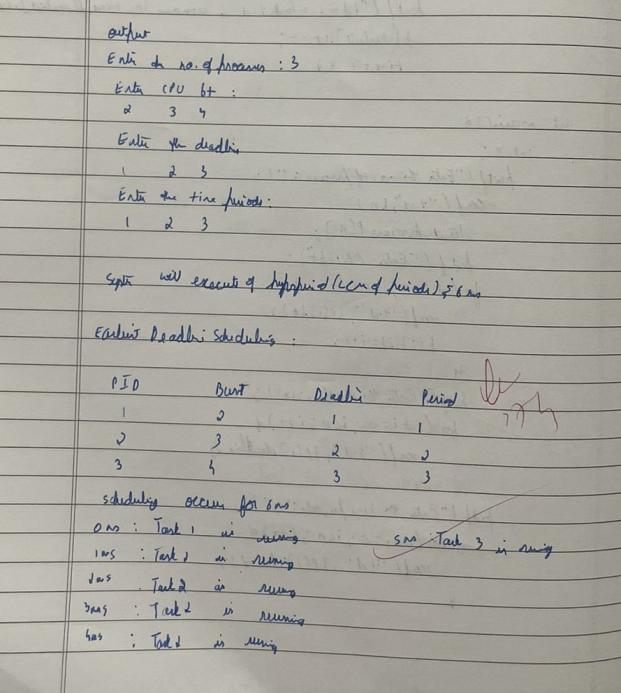 output
Enter the no. of processes : 3
Enter CPU bt :
2 3 4
Enter the deadline
1 2 3
Enter the time periods :
1 2 3
System will execute of hyperperiod (LCM of periods) : 6 ms
Earliest Deadline Scheduling :
PID Burst Deadline Period
1 2 1 1
2 3 2 2
3 4 3 3
scheduling occurs for 6ms
0ms : Task 1 is running
1ms : Task 1 is running
2ms Task 2 is running
3ms : Task 2 is running
4ms : Task 2 is running
5ms : Task 3 is running